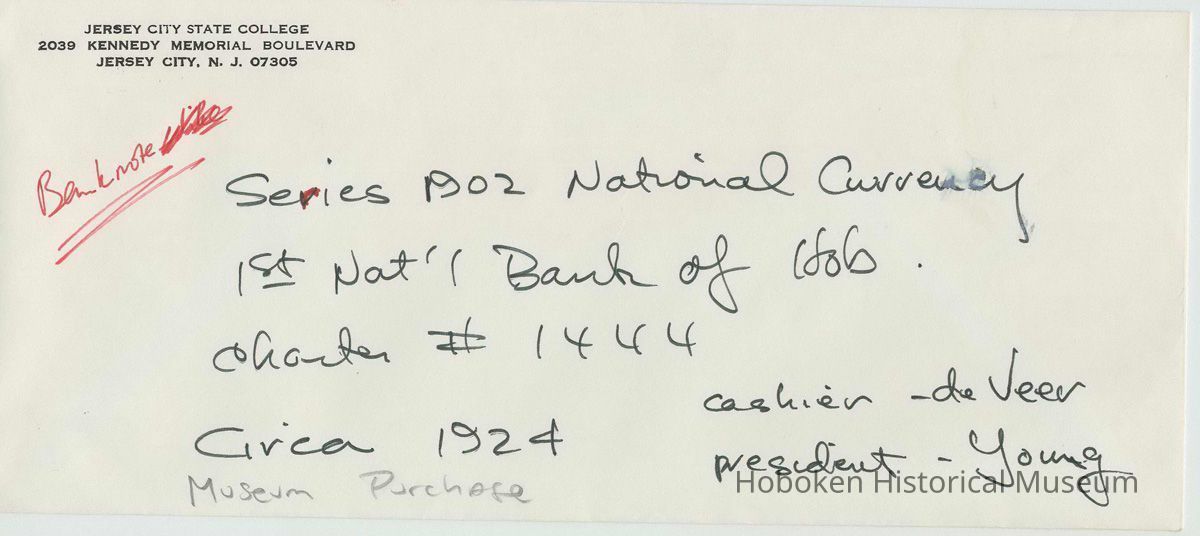 JERSEY CITY STATE COLLEGE
2039 KENNEDY MEMORIAL BOULEVARD
JERSEY CITY, N. J. 07305
Banknote
Series 1902 National Currency
1st Nat'l Bank of Hob.
Charter # 1444
cashier - de Veer
Circa 1924
president - Young
Museum Purchase
Hoboken Historical Museum